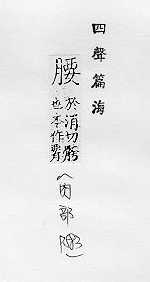 四聲篇海
腰
於消切
也本作
(肉部)